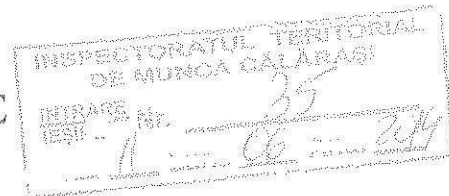 INSPECTORATUL TERITORIAL
DE MUNCA CĂLĂRAŞI
C
INTRARE
IEŞI.. Nr. 35
11 06